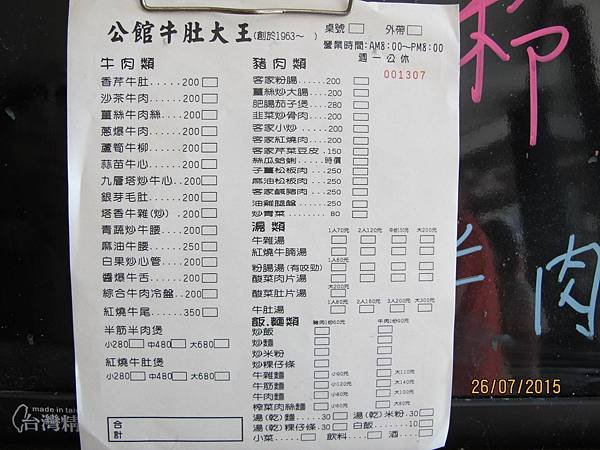 公館牛肚大王(創於1963~ )
桌號 外帶
營業時間:AM8:00~PM8:00
週一公休
001307
牛肉類
香芹牛肚.....200
沙茶牛肉.....200
薑絲牛肉絲....200
蔥爆牛肉.....200
蘆筍牛柳.....200
蒜苗牛心.....200
九層塔炒牛心..200
銀芽毛肚.....200
塔香牛雜(炒) .200
青蔬炒牛腰....200
麻油牛腰.....250
白果炒心管....200
醬爆牛舌.....200
綜合牛肉冷盤..200
紅燒牛尾.....350
半筋半肉煲
小280 中480 大680
紅燒牛肚煲
小280 中480 大680
合
計
豬肉類
客家粉腸......200
薑絲炒大腸....200
肥腸茄子煲....280
韭菜炒骨肉....200
客家小炒......200
客家紅燒肉....200
客家芹菜豆皮.150
絲瓜蛤蜊.....時價
子薑松板肉....250
麻油松板肉....250
客家鹹豬肉....250
油雞腿盤......250
炒青菜........ 80
湯類
1人70元 2人120元 中碗150元 大200元
牛雜湯
紅燒牛腩湯
1人80元
粉腸湯(有咬勁)
酸菜肉片湯
大200元
酸菜肚片湯
1人80元 2人160元 3人200元 大300元
牛肚湯
飯.麵類
豬肉1份60元 牛肉1份90元
炒飯
炒麵
炒米粉
炒粿仔條
牛雜麵 小90元 大110元
牛筋麵 小120元 大140元
牛肉麵 小80元 大100元
榨菜肉絲麵 小60元 大80元
湯(乾)麵...30 湯(乾)米粉.30
湯(乾)粿仔條.30 白飯......10
小菜.... 飲料.... 酒....
made in tai
台灣精
肉
26/07/2015